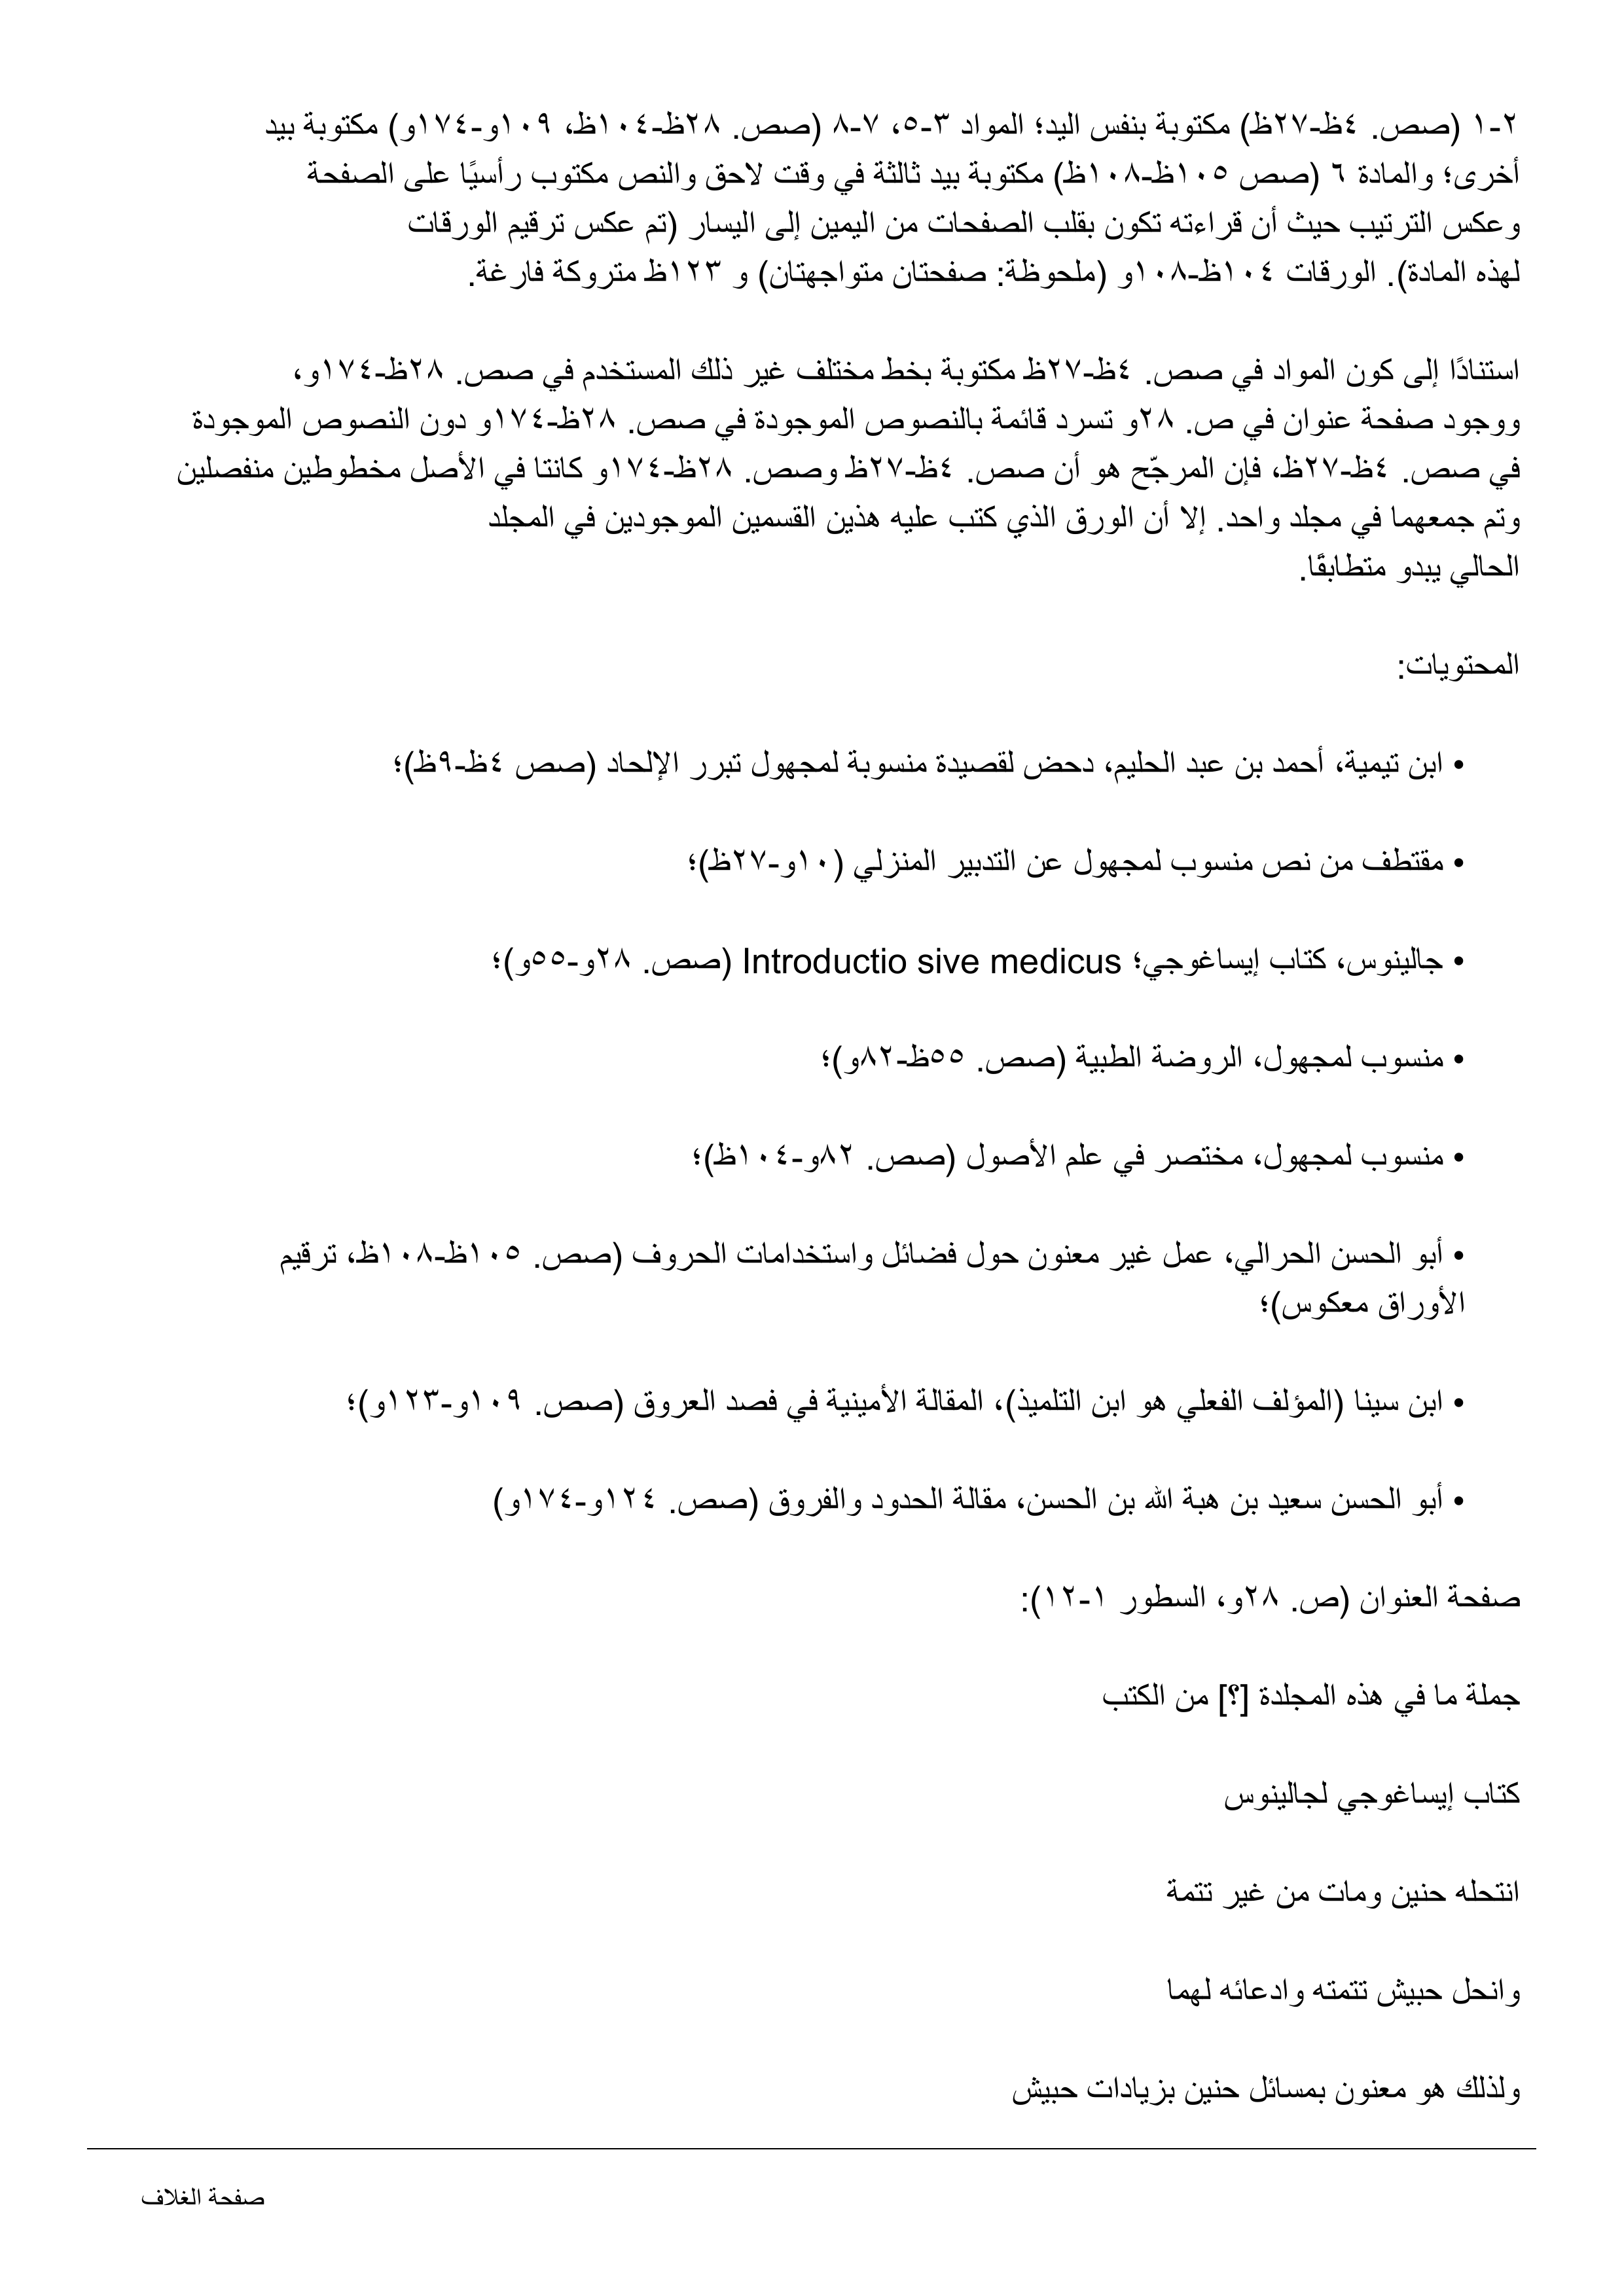 ١-٢ (صص. ٤ظ-٢٧ظ) مكتوبة بنفس اليد؛ المواد ٣-٥، ٧-٨ (صص. ٢٨ظ-١٠٤ظ، ١٠٩و-١٧٤و) مكتوبة بيد
أخرى؛ والمادة ٦ (صص ١٠٥ظ-١٠٨ظ) مكتوبة بيد ثالثة في وقت لاحق والنص مكتوب رأسيًا على الصفحة
وعكس الترتيب حيث أن قراءته تكون بقلب الصفحات من اليمين إلى اليسار (تم عكس ترقيم الورقات
لهذه المادة). الورقات ١٠٤ظ-١٠٨و (ملحوظة: صفحتان متواجهتان) و ١٢٣ظ متروكة فارغة.
استنادًا إلى كون المواد في صص. ٤ظ-٢٧ظ مكتوبة بخط مختلف غير ذلك المستخدم في صص. ٢٨ظ-١٧٤و،
ووجود صفحة عنوان في ص. ٢٨و تسرد قائمة بالنصوص الموجودة في صص. ٢٨ظ-١٧٤و دون النصوص الموجودة
في صص. ٤ظ-٢٧ظ، فإن المرجّح هو أن صص. ٤ظ-٢٧ظ وصص. ٢٨ظ-١٧٤و كانتا في الأصل مخطوطين منفصلين
وتم جمعهما في مجلد واحد. إلا أن الورق الذي كتب عليه هذين القسمين الموجودين في المجلد
الحالي يبدو متطابقًا.
المحتويات:
• ابن تيمية، أحمد بن عبد الحليم، دحض لقصيدة منسوبة لمجهول تبرر الإلحاد (صص ٤ظ-٩ظ)؛
• مقتطف من نص منسوب لمجهول عن التدبير المنزلي (١٠و-٢٧ظ)؛
• جالينوس، كتاب إيساغوجي؛ Introductio sive medicus (صص. ٢٨و-٥٥و)؛
• منسوب لمجهول، الروضة الطبية (صص. ٥٥ظ-٨٢و)؛
• منسوب لمجهول، مختصر في علم الأصول (صص. ٨٢و-١٠٤ظ)؛
• أبو الحسن الحرالي، عمل غير معنون حول فضائل واستخدامات الحروف (صص. ١٠٥ظ-١٠٨ظ، ترقيم
الأوراق معكوس)؛
• ابن سينا (المؤلف الفعلي هو ابن التلميذ)، المقالة الأمينية في فصد العروق (صص. ١٠٩و-١٢٣و)؛
• أبو الحسن سعيد بن هبة الله بن الحسن، مقالة الحدود والفروق (صص. ١٢٤و-١٧٤و)
صفحة العنوان (ص. ٢٨و، السطور ١-١٢):
جملة ما في هذه المجلدة [؟] من الكتب
كتاب إيساغوجي لجالينوس
انتحله حنين ومات من غير تتمة
وانحل حبيش تتمته وادعائه لهما
ولذلك هو معنون بمسائل حنين بزيادات حبيش
صفحة الغلاف